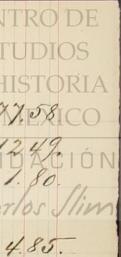 NTRO DE
TUDIOS
HISTORIA
MÉXICO
77.58
1249.
DACIÓN
1.80.
arlos Slim
4.85.